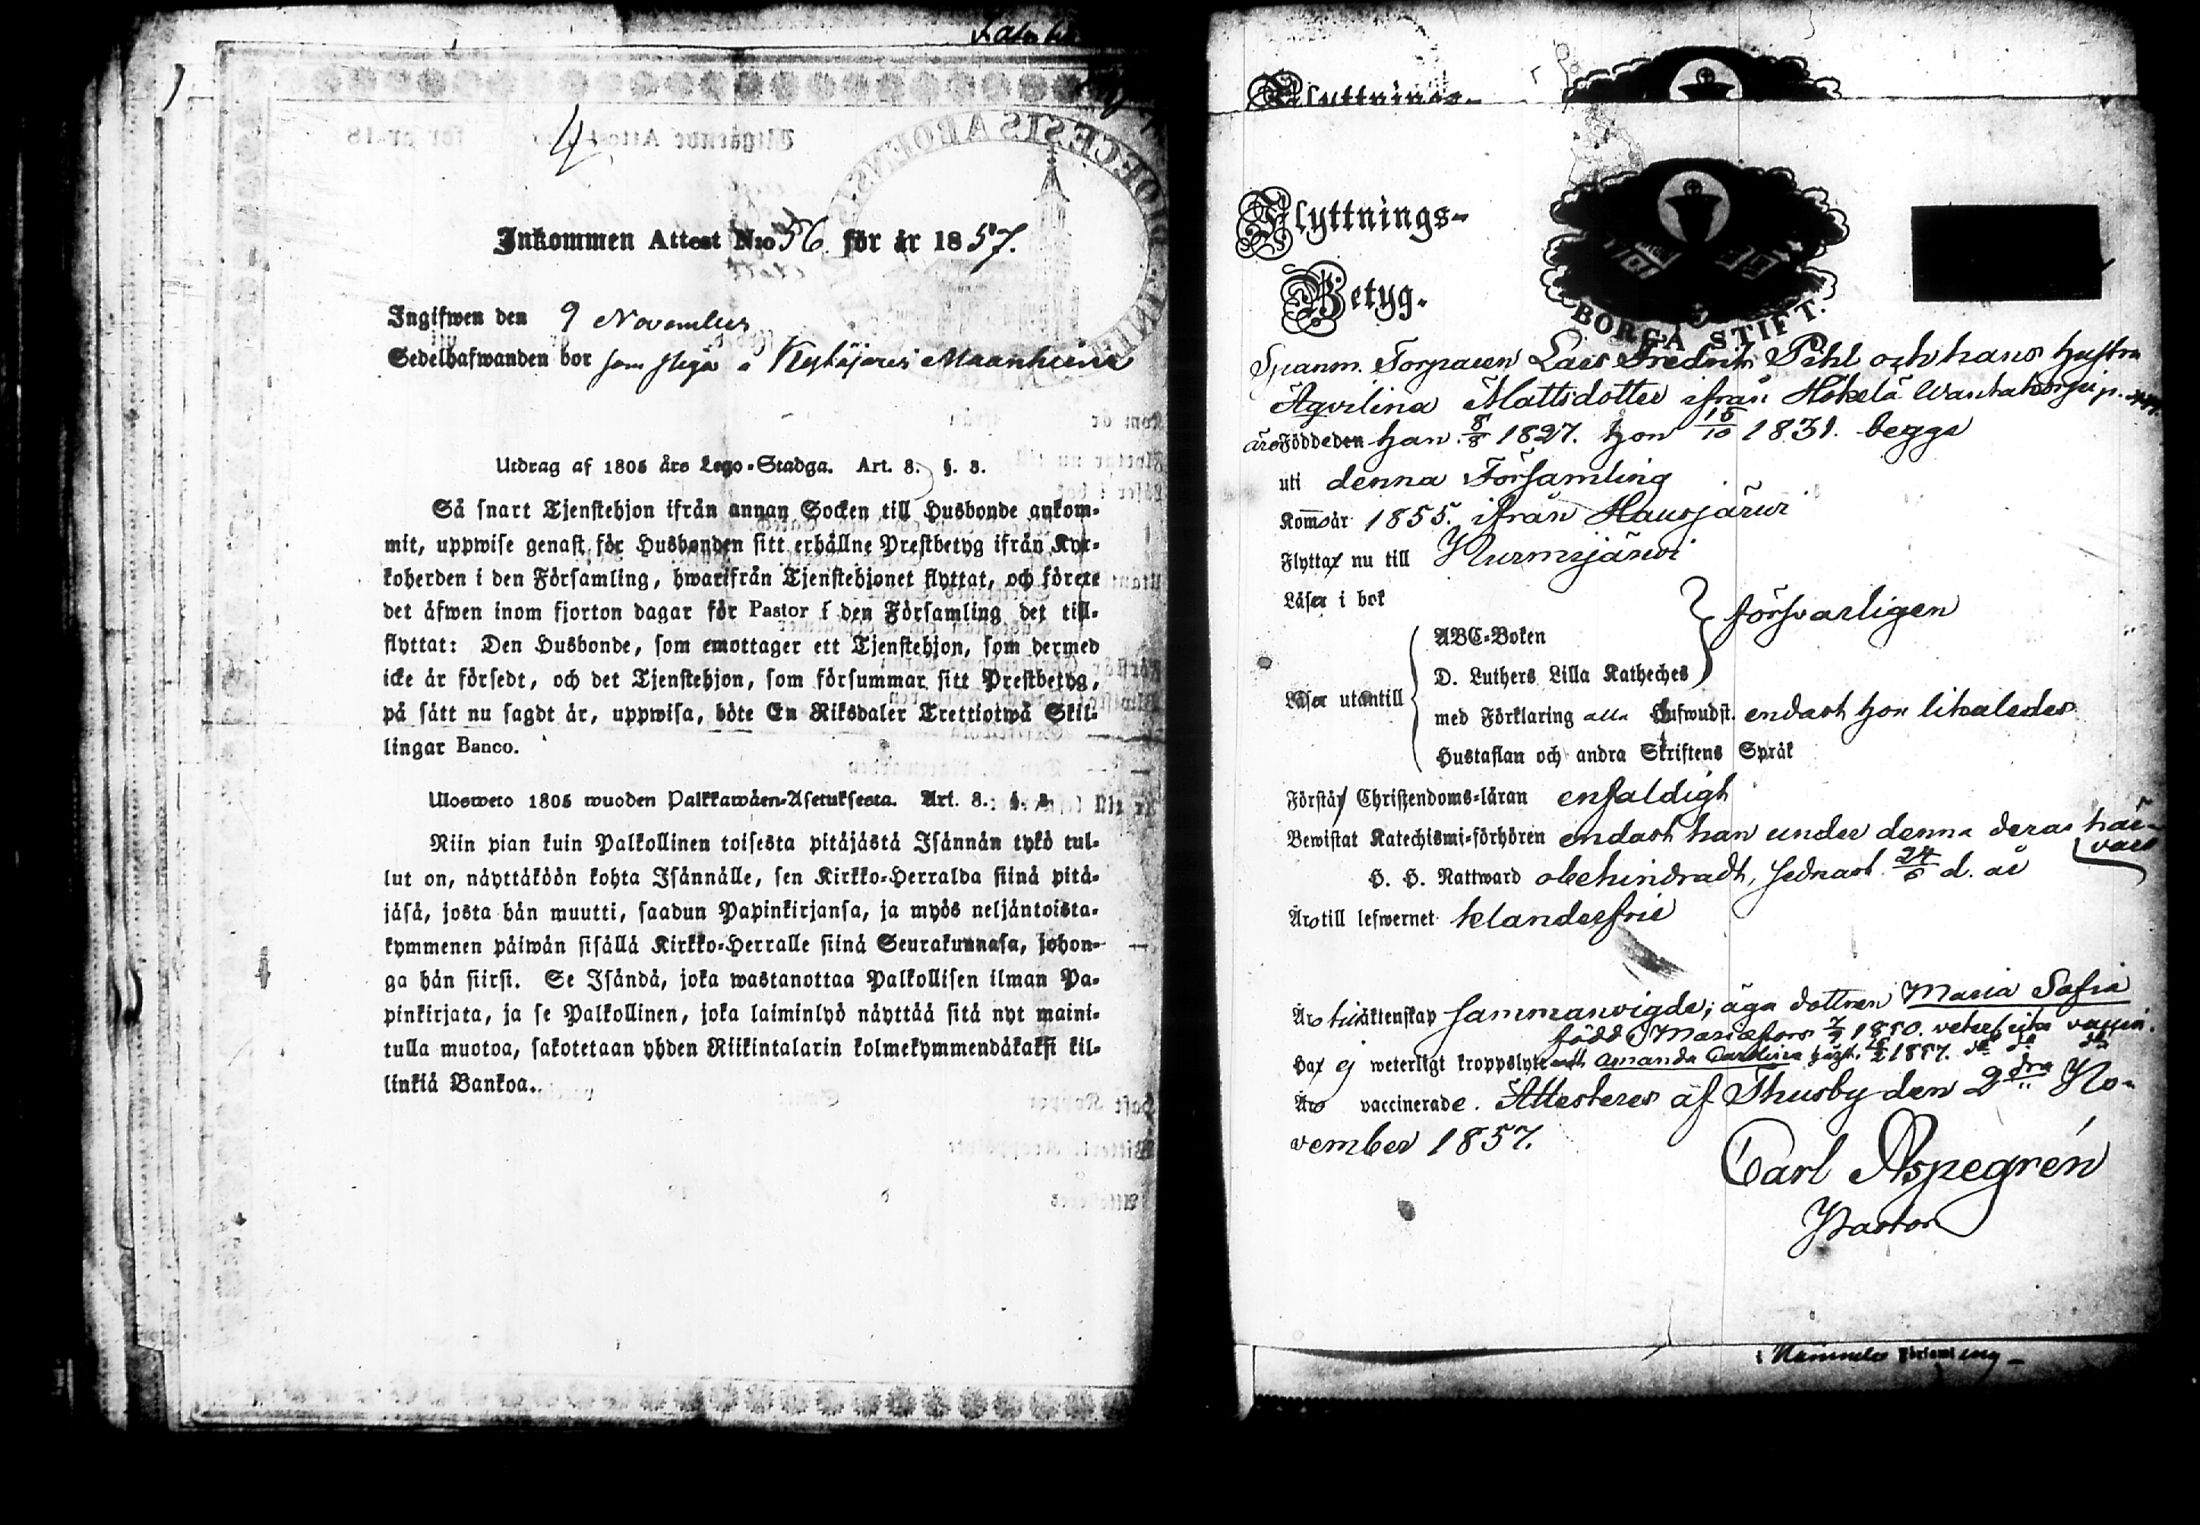 4
Inkommen Attest N:o 56 för år 1857.
Ingifwen den 9 November
Sedelhafwanden bor som piga
Utdrag af 1805 års Lego-Stadga. Art. 8. §. 3.
Så snart Tjenstehjon ifrån annan Socken till Husbonde ankom-
mit, uppwise genast för Husbonden sitt erhållne Prestbetyg ifrån Kyr-
koherden i den Församling, hwarifrån Tjenstehjonet flyttat, och förete
det äfwen inom fjorton dagar för Pastor i den Församling det till-
flyttat: Den Husbonde, som emottager ett Tjenstehjon, som dermed
icke är försedt, och det Tjenstehjon, som försummar sitt Prestbetyg,
på sätt nu sagdt är, uppwisa, böte En Riksdaler Trettiotwå Skil-
lingar Banco.
Ulosweto 1805 wuoden Palkkawäen-Asetuksesta. Art. 8. §. 3.
Niin pian kuin Palkollinen toisesta pitäjästä Isännän tykö tul-
lut on, näyttäköön kohta Isännälle, sen Kirkko-Herralda siinä pitä-
jäsä, josta hän muutti, saadun Papinkirjansa, ja myös neljäntoista-
kymmenen päiwän sisällä Kirkko-Herralle siinä Seurakunnasa, johon-
ga hän siirsi. Se Isändä, joka wastanottaa Palkollisen ilman Pa-
pinkirjata, ja se Palkollinen, joka laiminlyö näyttää sitä nyt maini-
tulla muotoa, sakotetaan yhden Riikintalarin kolmekymmendäkaksi kil-
linkiä Bankoa.
Flyttnings-
Flyttnings-
Betyg.
BORGÅ STIFT.
Spanm. Torparen Lars Fredrik Pihl och hans hustru
Agvilina Mattsdotter ifrån Hökelä
äro Födde den han 8/8 1827. hon 15/10 1831. begge
uti denna Församling
Kommo år 1855. ifrån Hausjärvi
Flytta nu till Nurmijärvi
Läsa i bok
ABC-Boken
försvarligen
D. Luthers Lilla Katheches
Läsa utantill
med Förklaring alla Hufwudst. endast hon likaledes
Hustaflan och andra Skriftens Språk
Förstå Christendoms-läran enfaldigt
Bewistat Katechismi-förhören endast han under denna deras här-
varo
H. H. Nattward obehindradt, sednast 24/6 d. år
Äro till lefwernet klanderfrie
Äro till äktenskap sammanvigde; äga dottren Maria Sofia
född i Mariæfors 7/9 1850.
Ha ej weterligt kroppslyte och Amanda Carolina 1857. do do do
Äro vaccinerade. Attesteras af Thusby den 2dra No-
vember 1857.
Carl Aspegrén
Pastor